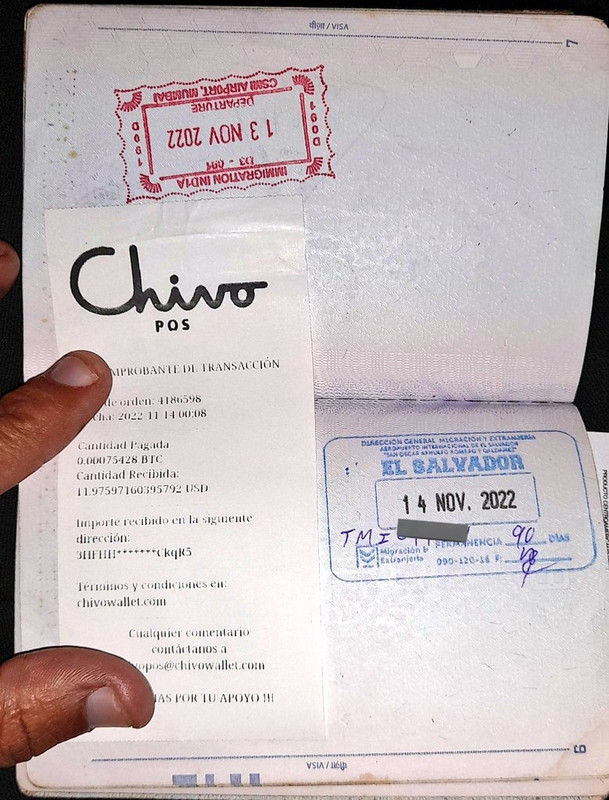 वीज़ा / VISA
7
IMMIGRATION INDIA
13 NOV 2022
DEPARTURE
CSMI AIRPORT, MUMBAI
Chivo
POS
MPROBANTE DE TRANSACCIÓN
de orden: 4186598
cha: 2022-11-14 00:08
Cantidad Pagada
0.00075428 BTC
Cantidad Recibida:
11.97597160395792 USD
Importe recibido en la siguiente
dirección:
3HFHH*******CkqR5
Términos y condiciones en:
chivowallet.com
Cualquier comentario
contáctanos a
vopos@chivowallet.com
AS POR TU APOYO !!!
DIRECCIÓN GENERAL MIGRACIÓN Y EXTRANJERÍA
AEROPUERTO INTERNACIONAL DE EL SALVADOR
"SAN OSCAR ARNULFO ROMERO Y GALDÁMEZ"
EL SALVADOR
14 NOV. 2022
PERMANENCIA 90 DÍAS
Migración y
Extranjería
090-120-14 F:
6
वीज़ा / VISA